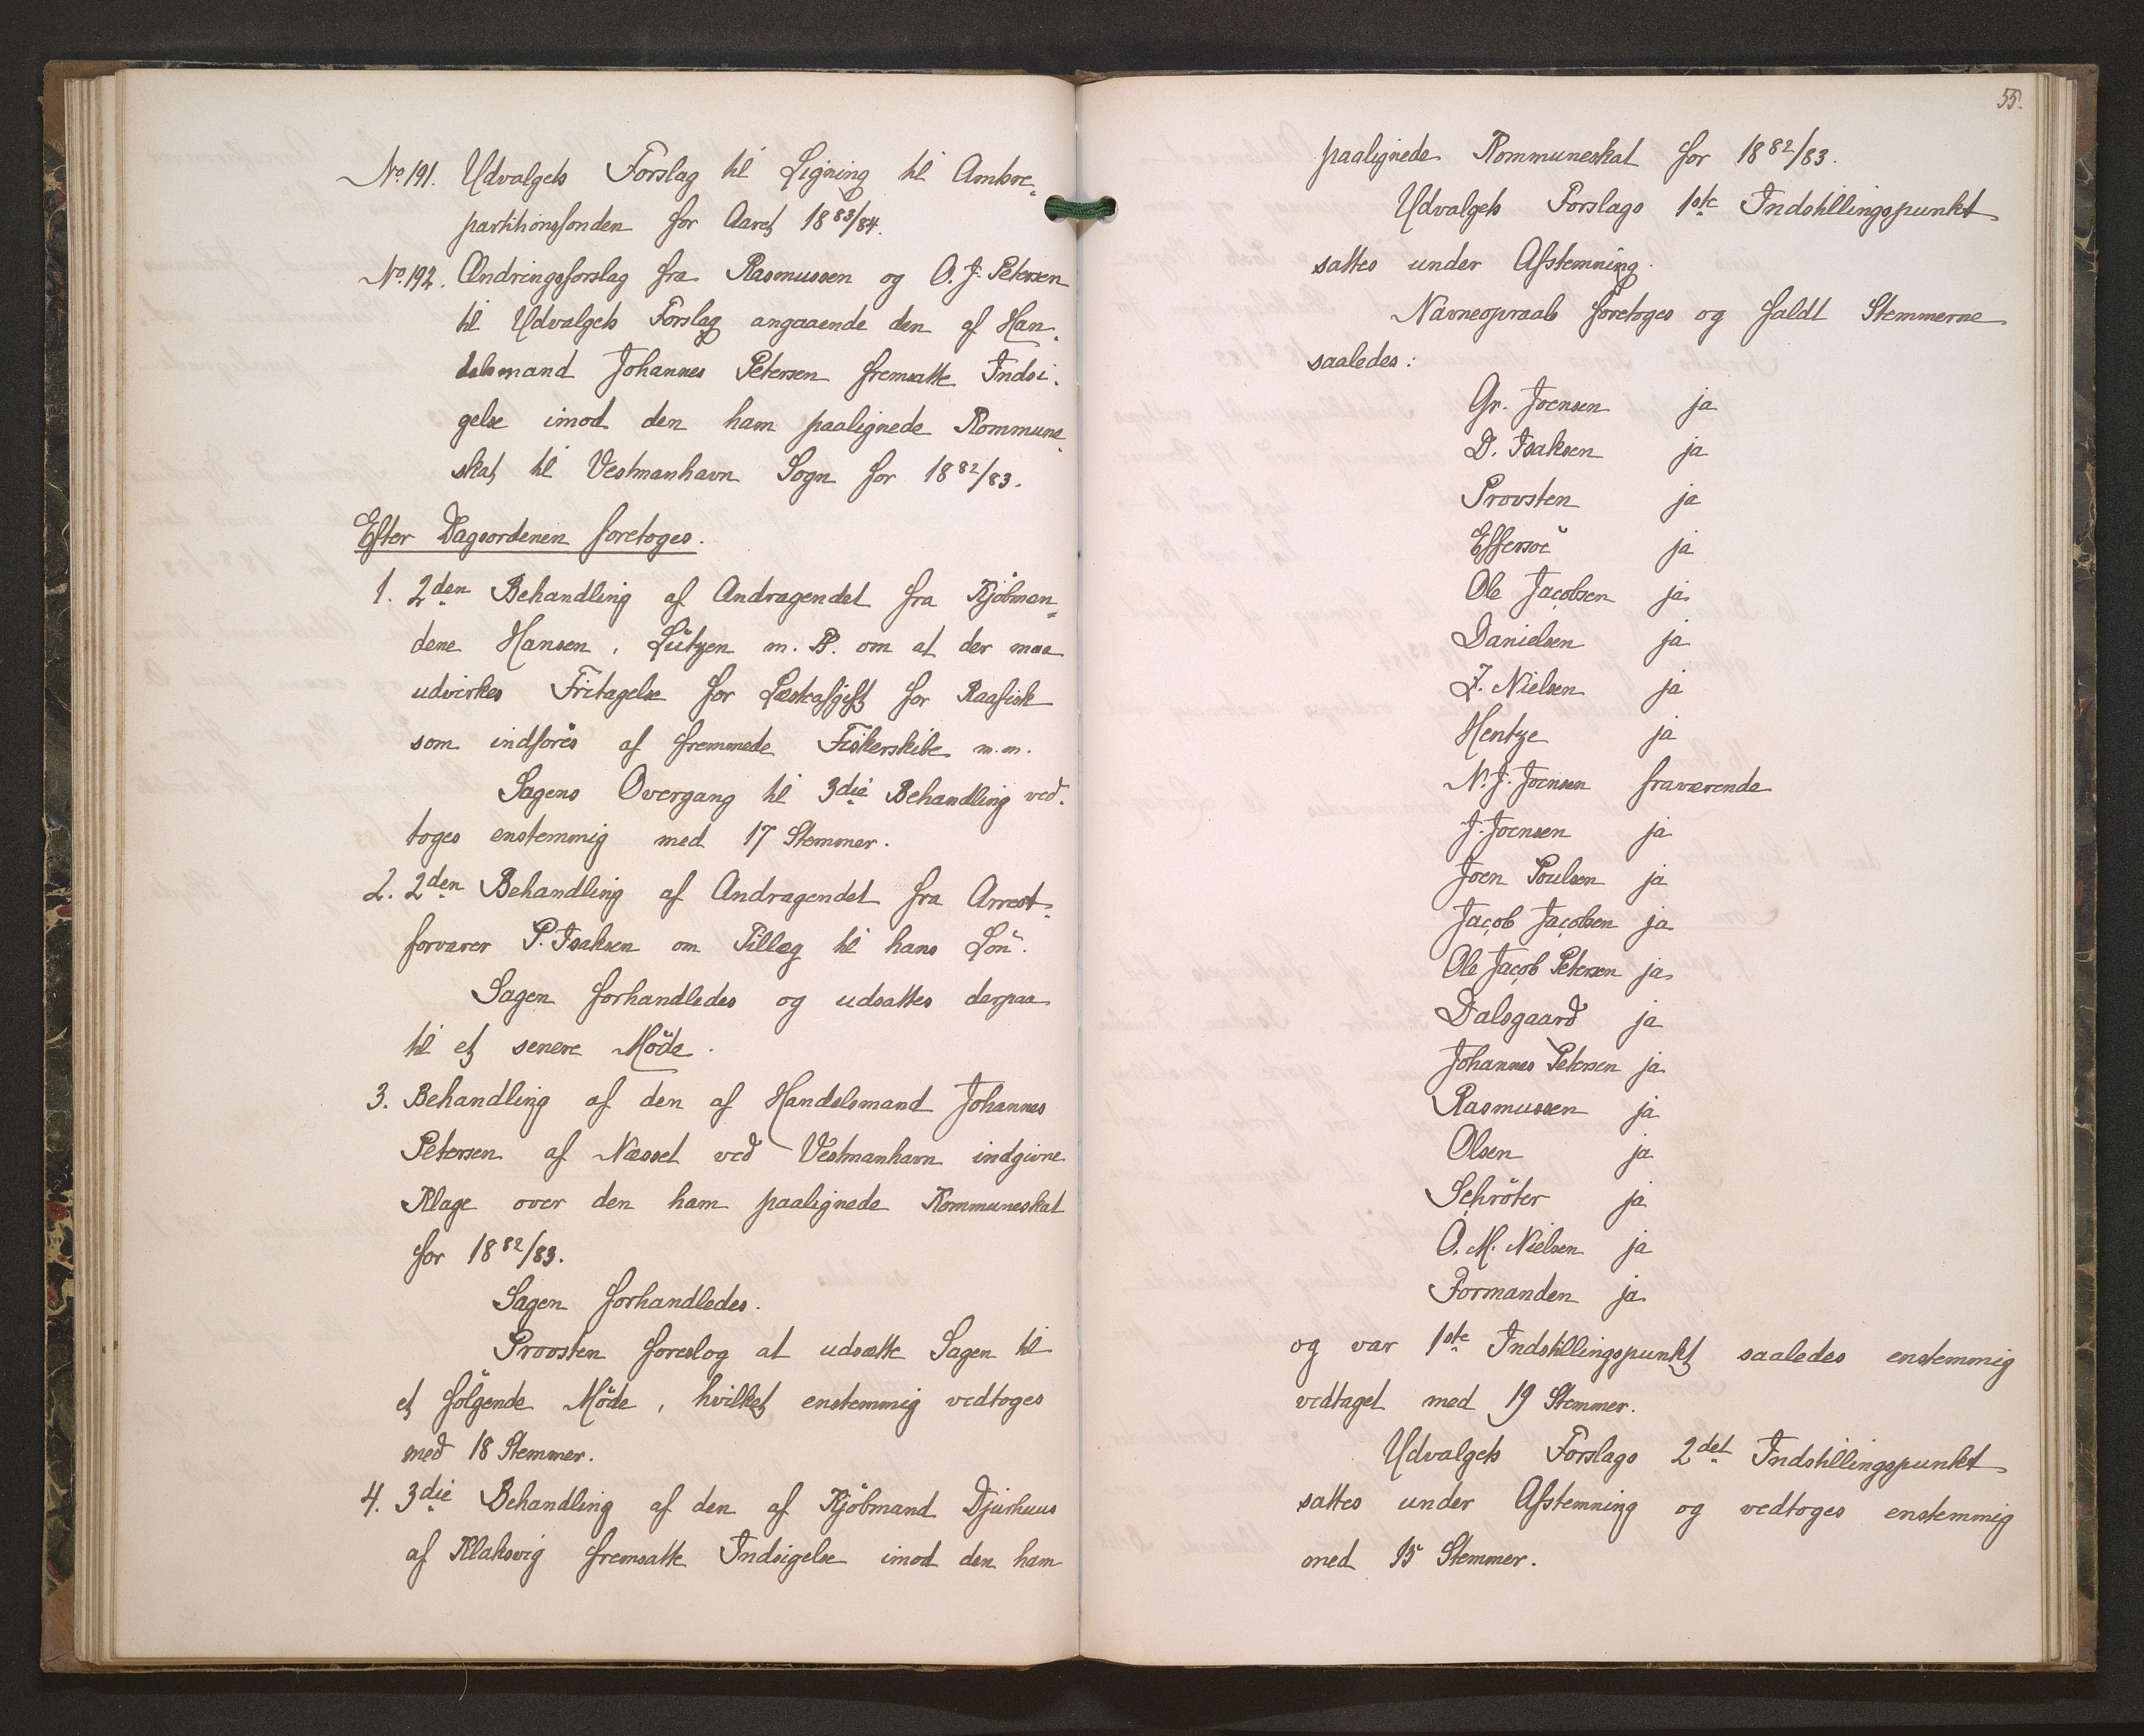 No. 191. Udvalgets Forslag til Ligning til Amtsre-
partitionsfonden for Aaret 1883/84.
No. 192. Ændringsforslag fra Rasmussen og O. J. Petersen
til Udvalgets Forslag angaaende den af Han-
delsmand Johannes Petersen fremsatte Indsi-
gelse imod den ham paalignede Kommune-
skat til Vestmanhavn Sogn for 1882/83.
Efter Dagsordenen foretoges.
1. 2den Behandling af Andragendet fra Kjöbmæn-
dene Hansen, Lützen m. Fl. om at der maa
udvirkes Fritagelse for Læsteafgift for Raafisk
som indföres af fremmede Fiskerskibe m.m.
Sagens Overgang til 3die Behandling ved-
toges enstemmig med 17 Stemmer.
2. 2den Behandling af Andragendet fra Arrest-
forvarer P. Isaksen om Tillæg til hans Lön.
Sagen forhandledes og udsattes derpaa
til et senere Möde.
3. Behandling af den af Handelsmand Johannes
Petersen af Næsset ved Vestmanhavn indgivne
Klage over den ham paalignede Kommuneskat
for 1882/83.
Sagen forhandledes.
Provsten foreslog at udsætte Sagen til
et fölgende Möde, hvilket enstemmig vedtoges
med 18 Stemmer.
4. 3die Behandling af den af Kjöbmand Djurhuus
af Klaksvig fremsatte Indsigelse imod den ham
55.
paalignede Kommuneskat for 1882/83.
Udvalgets Forslags 1ste Indstillingspunkt
sattes under Afstemning.
Navneopraab foretoges og faldt Stemmerne
saaledes:
Gr. Joensen ja
D. Isaksen ja
Provsten ja
Effersöe ja
Ole Jacobsen ja
Danielsen ja
Z. Nielsen ja
Hentze ja
N. J. Joensen fraværende
J. Joensen ja
Joen Poulsen ja
Jacob Jacobsen ja
Ole Jacob Petersen ja
Dalsgaard ja
Johannes Petersen ja
Rasmussen ja
Olsen ja
Schröter ja
O. M. Nielsen ja
Formanden ja
og var 1ste Indstillingspunkt saaledes enstemmig
vedtaget med 19 Stemmer.
Udvalgets Forslags 2det Indstillingspunkt
sattes under Afstemning og vedtoges enstemmig
med 15 Stemmer.